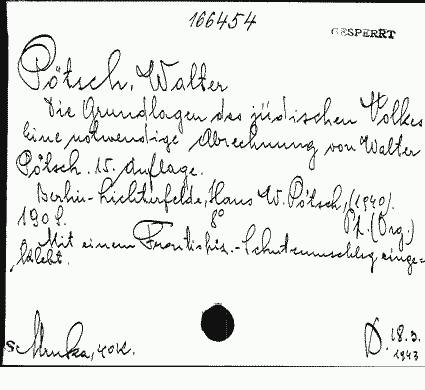 166454
GESPERRT
Pötsch, Walter
Die Grundlagen des jüdischen Volkes
Eine notwendige Abrechnung von Walter
Pötsch. 15. Auflage.
Berlin-Lichterfelde, Hans W. Pötsch, (1940).
190 S. 8° Pl. (Org.)
Mit einem Frontispiz.-Schutzumschlag einge=
klebt.
40K.
D. 18.3.
1943